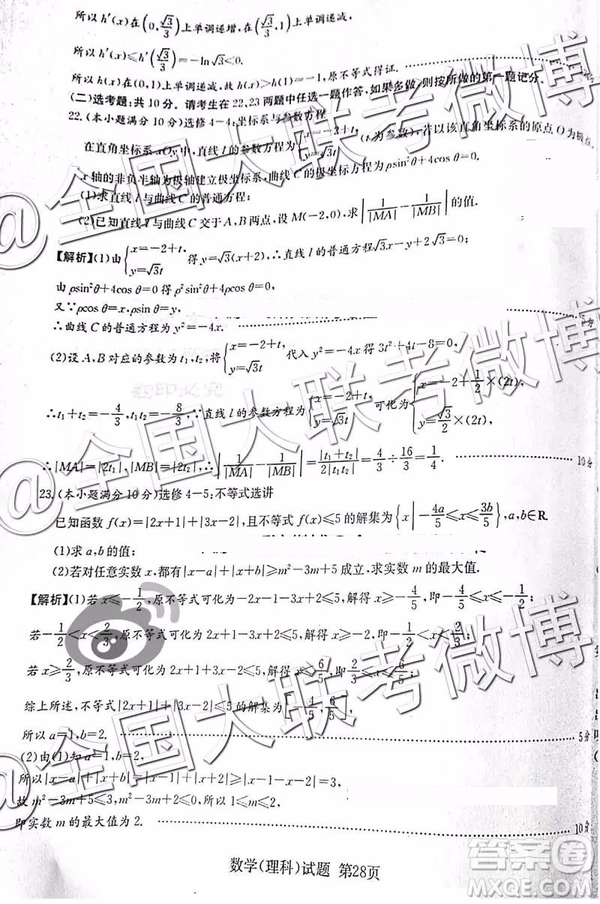 所以 h′(x)在(0,√3/3)上单调递增,在(√3/3,1)上单调递减,
所以 h′(x)≤h′(√3/3)=-ln√3<0.
所以 h(x)在(0,1)上单调递减,故 h(x)>h(1)=-1,原不等式得证.
(二)选考题:共 10 分。请考生在 22,23 两题中任选一题作答,如果多做,则按所做的第一题记分.
22.(本小题满分 10 分)选修 4-4:坐标系与参数方程
在直角坐标系 xOy 中,直线 l 的参数方程为{x=-2+t, y=√3t (t 为参数),若以该直角坐标系的原点 O 为极点,
x 轴的非负半轴为极轴建立极坐标系,曲线 C 的极坐标方程为 ρsin²θ+4cos θ=0.
(1)求直线 l 与曲线 C 的普通方程;
(2)已知直线 l 与曲线 C 交于 A,B 两点,设 M(-2,0),求|1/|MA|-1/|MB||的值.
【解析】(1)由{x=-2+t, y=√3t 得 y=√3(x+2),∴直线 l 的普通方程√3x-y+2√3=0;
由 ρsin²θ+4cos θ=0 得 ρ²sin²θ+4ρcos θ=0,
又∵ρcos θ=x,ρsin θ=y,
∴曲线 C 的普通方程为 y²=-4x. 5分
(2)设 A,B 对应的参数为 t₁,t₂,将{x=-2+t, y=√3t 代入 y²=-4x 得 3t²+4t-8=0,
∴t₁+t₂=-4/3,t₁t₂=-8/3.∵直线 l 的参数方程为{x=-2+t, y=√3t 可化为{x=-2+1/2×(2t), y=√3/2×(2t),
∴|MA|=|2t₁|,|MB|=|2t₂|, ∴|1/|MA|-1/|MB||=|t₁+t₂|/2|t₁t₂|=4/3÷16/3=1/4. 10分
23.(本小题满分 10 分)选修 4-5:不等式选讲
已知函数 f(x)=|2x+1|+|3x-2|,且不等式 f(x)≤5 的解集为{x|-4a/5≤x≤3b/5},a,b∈R.
(1)求 a,b 的值;
(2)若对任意实数 x,都有|x-a|+|x+b|≥m²-3m+5 成立,求实数 m 的最大值.
【解析】(1)若 x≤-1/2,原不等式可化为-2x-1-3x+2≤5,解得 x≥-4/5,即-4/5≤x≤-1/2;
若-1/2<x<2/3,原不等式可化为 2x+1-3x+2≤5,解得 x≥-2,即-1/2<x<2/3;
若 x≥2/3,原不等式可化为 2x+1+3x-2≤5,解得 x≤6/5,即2/3≤x≤6/5;
综上所述,不等式|2x+1|+|3x-2|≤5 的解集为[-4/5,6/5],
所以 a=1,b=2. 5分
(2)由(1)知 a=1,b=2,
所以|x-a|+|x+b|=|x-1|+|x+2|≥|x-1-x-2|=3,
故 m²-3m+5≤3,m²-3m+2≤0,所以 1≤m≤2,
即实数 m 的最大值为 2. 10分
数学(理科)试题 第28页
@全国大联考微博
@全国大联考微博
@全国大联考微博
答案圈